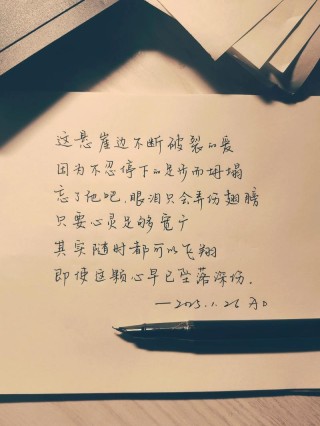 这悬崖边不断破裂的爱
因为不忍停下的足步而坍塌
忘了他吧,眼泪只会弄伤翅膀
只要心灵足够宽广
其实随时都可以飞翔
即便这颗心早已坠落深伤.